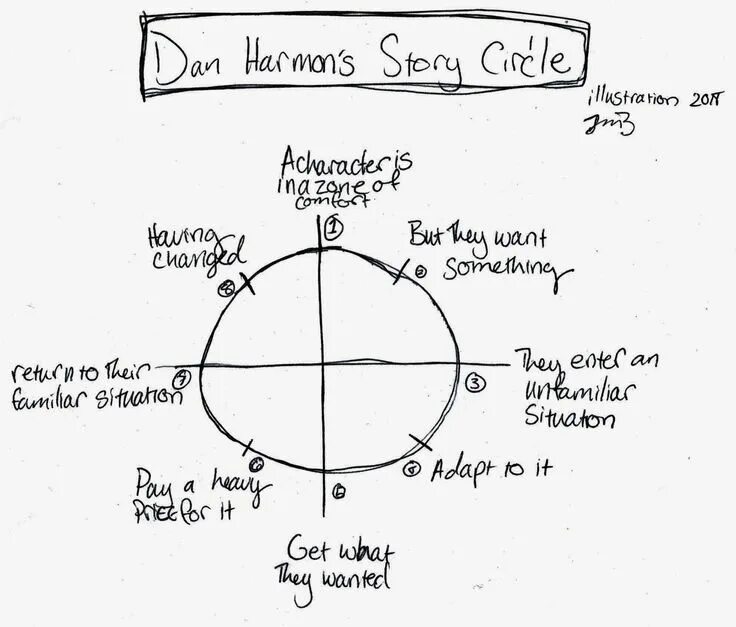 Dan Harmon's Story Circle
illustration
A character is
in a zone of
comfort
①
But They want
Something
They enter an
unfamiliar
Situation
③
Adapt to it
Get what
They wanted
Pay a heavy
Price for it
return to Their
familiar situation
Having
changed